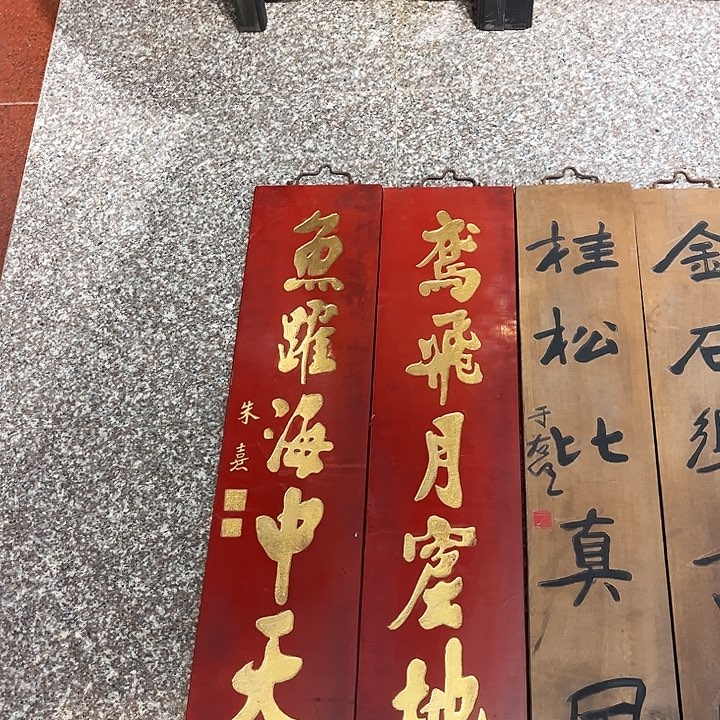 金石
桂松比真
于右任
鸢飛月窟地
魚躍海中天
朱熹